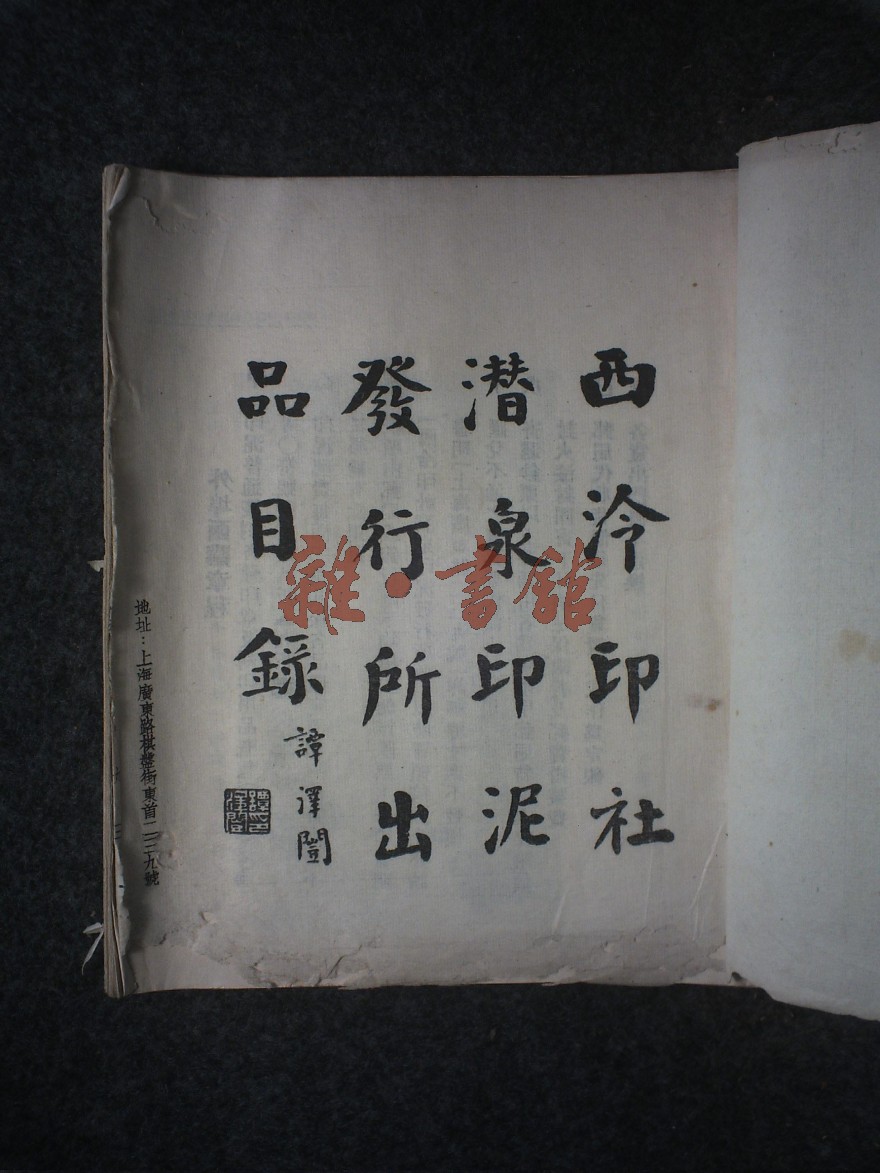 西泠印社
潜泉印泥
發行所出
品目錄
譚澤闓
譚澤闓印
地址：上海廣東路棋盤街東首二三九號
雜·書館